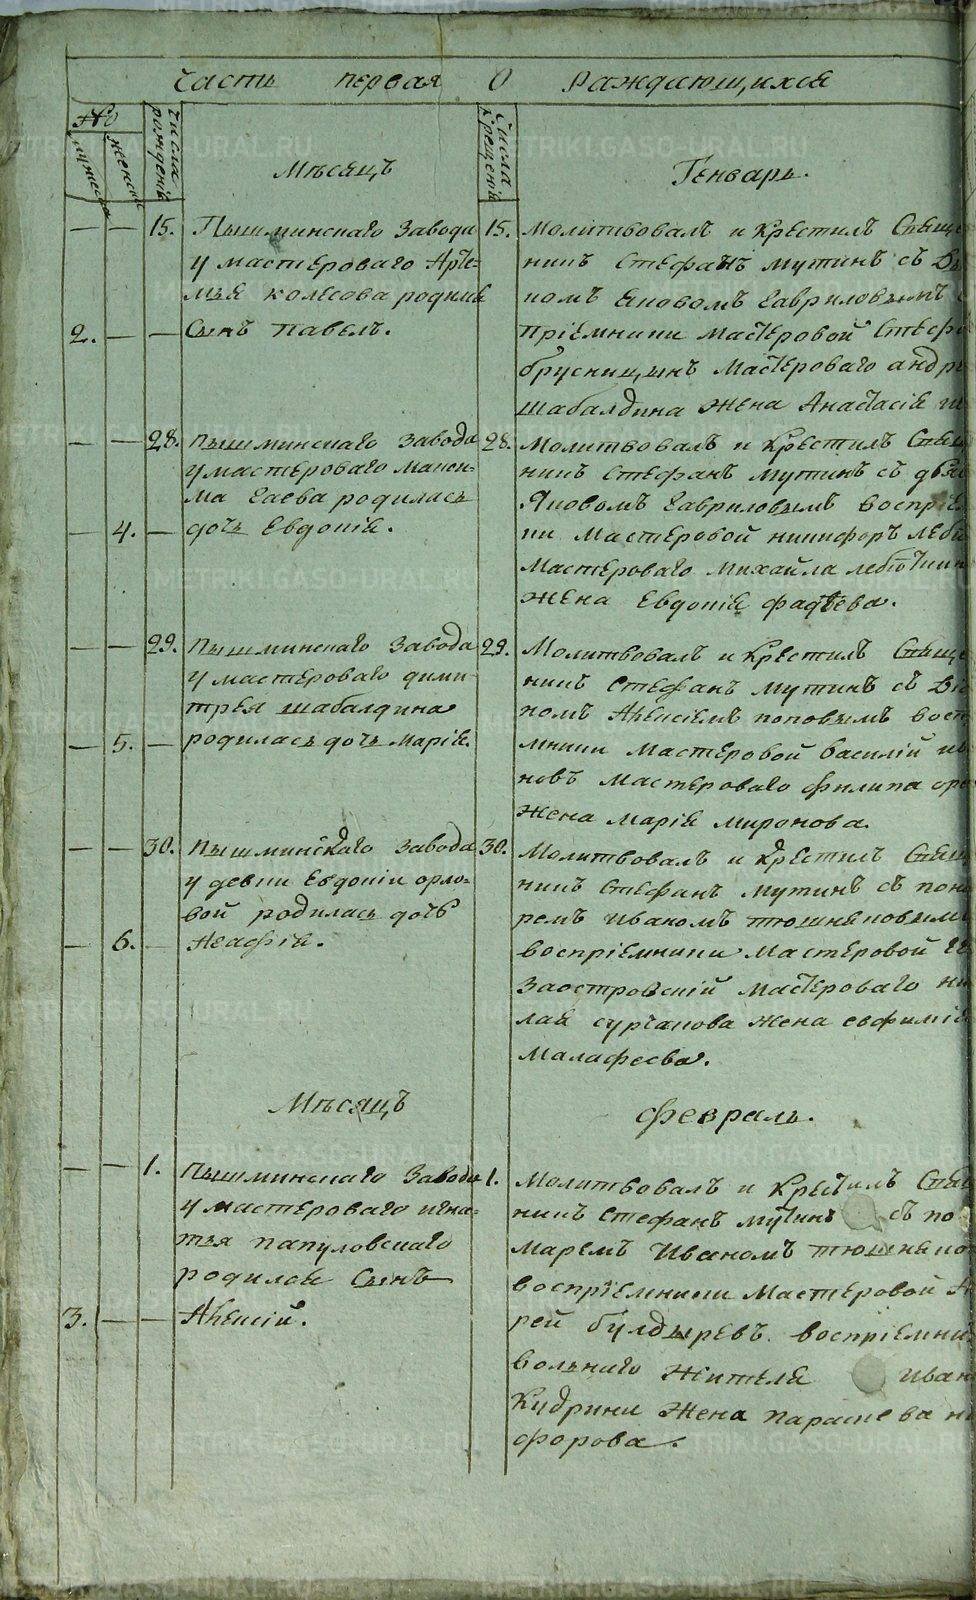 Часть первая О раждающихся
№
мужеска
женска
Числа рожденія
Мѣсяцъ
Числа крещенія
Генварь.
— — 15. Пышминскаго завода
у мастероваго Арте-
мья колесова родился
2. — — Сынъ павелъ.
15. Молитвовалъ и Крестилъ Свяще
никъ Стефанъ мутинъ съ
помъ Яковомъ Гавриловымъ
пріемники мастеровой Стеф
брусницынъ Мастероваго андр
шабалдина Жена Анастасія
— — 28. пышминскаго завода
у мастероваго макси-
ма Гаева родилась
— 4. — дочь Евдокія.
28. Молитвовалъ и Крестилъ Свяще
никъ Стефанъ мутинъ съ дья
Яковомъ Гавриловымъ воспріе
ки Мастеровой никифоръ
Мастероваго михайла
жена Евдокія фадѣева.
— — 29. пышминскаго завода
у мастероваго дими-
трея шабалдина
— 5. — родилась дочь Марія.
29. Молитвовалъ и Крестилъ Свяще
никъ Стефанъ мутинъ съ Дія
помъ Алексіемъ поповымъ восп
мники мастеровой василій
новъ мастероваго филипа
Жена марія миронова.
— — 30. пышминскаго завода
у девки Евдокіи орло-
вой родилась дочь
— 6. — Агафія.
30. Молитвовалъ и крестилъ Свяще
никъ Стефанъ мутинъ съ поно
ремъ Иваномъ тюшняковымъ
воспріемники мастеровой
Заостровскій мастероваго ни
лая сурганова жена евфимія
Малафеева.
Мѣсяцъ
Февраль.
— — 1. пышминскаго завода
у мастероваго игна-
тья папуловскаго
родился Сынъ
3. — — Алексій.
1. Молитвовалъ и Крестилъ Свяще
никъ Стефанъ мутинъ съ по
маремъ Иваномъ тюшняко
воспріемники мастеровой
рей булдыревъ воспріемни
вольнаго Жителя иван
Кудрина Жена параскева ни
форова.
METRIKI.GASO-URAL.RU